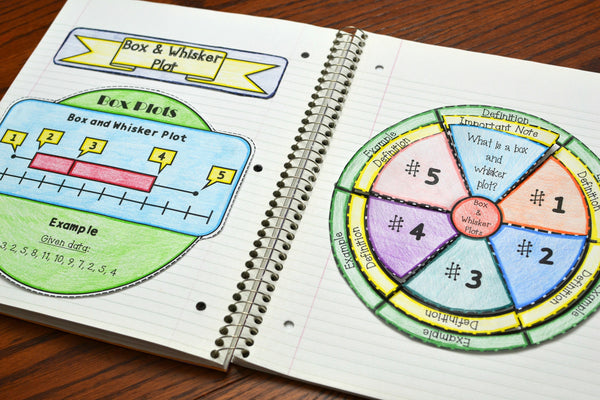 Box & Whisker
Plot
Box Plots
Box and Whisker Plot
1
2
3
4
5
Example
Given data:
3, 2, 5, 8, 11, 10, 9, 7, 2, 5, 4
Definition
Important Note
What is a box
and
whisker
plot?
#1
#2
#3
#4
#5
Box
&
Whisker
Plots
Example
Definition
Example
Definition
Example
Definition
Example
Definition
Definition